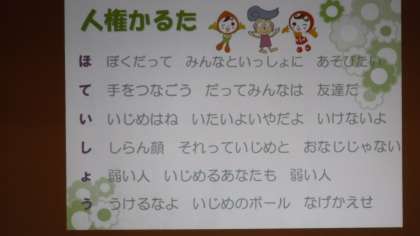 人権かるた
ほ ぼくだって みんなといっしょに あそびたい
て 手をつなごう だってみんなは 友達だ
い いじめはね いたいよいやだよ いけないよ
し しらん顔 それっていじめと おなじじゃない
ょ 弱い人 いじめるあなたも 弱い人
う うけるなよ いじめのボール なげかえせ